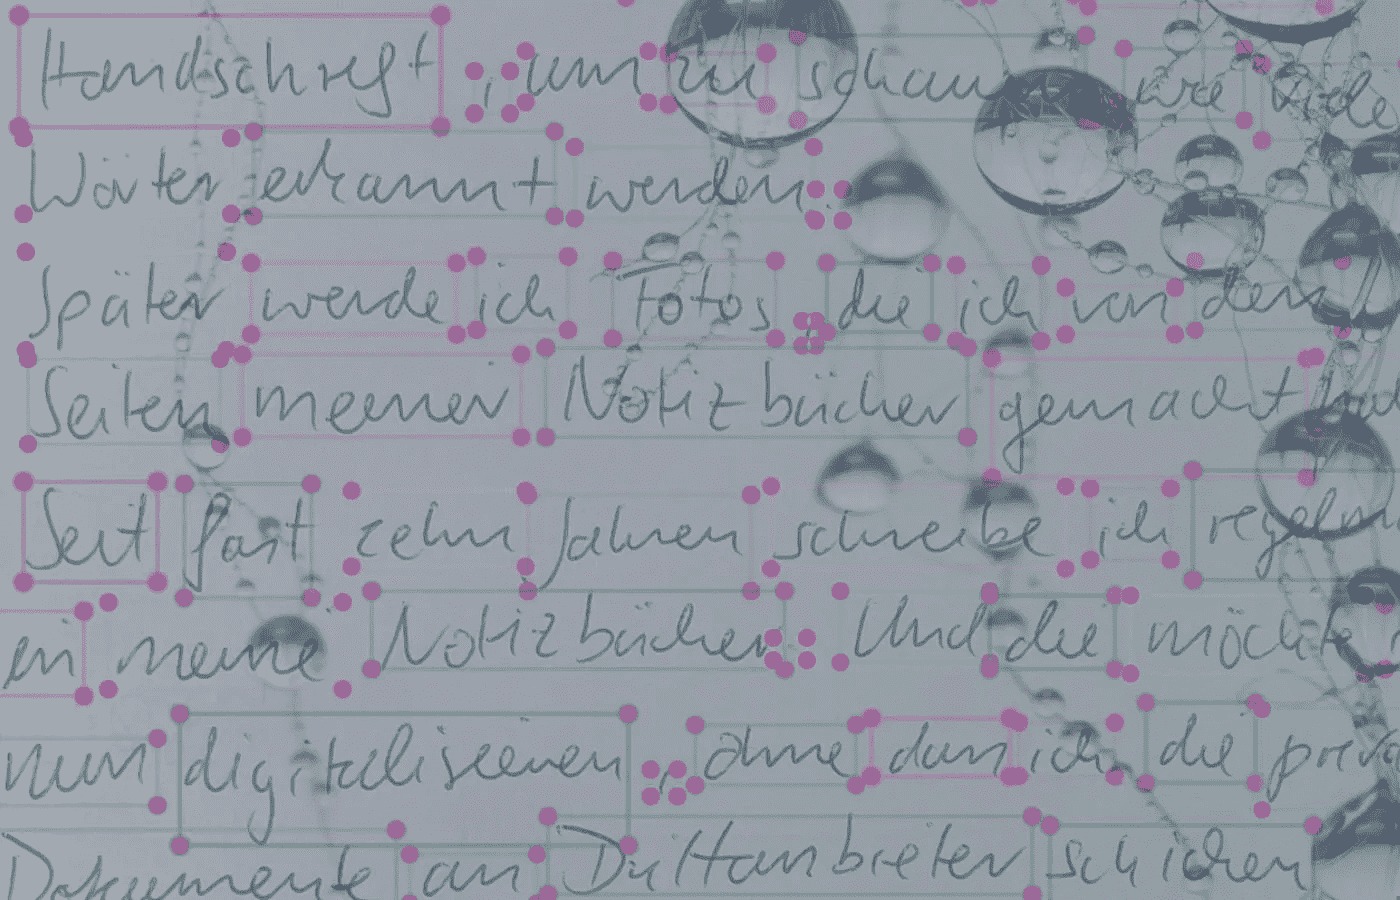 Handschrift, um zu schauen wie viele
Wörter erkannt werden.
Später werde ich Fotos, die ich von den
Seiten meiner Notizbücher gemacht
Seit fast zehn Jahren schreibe ich regelm
ein meine Notizbücher. Und die möchte
nun digitalisieren, ohne dan ich die priva
Dokumente an Drittanbieter schicken